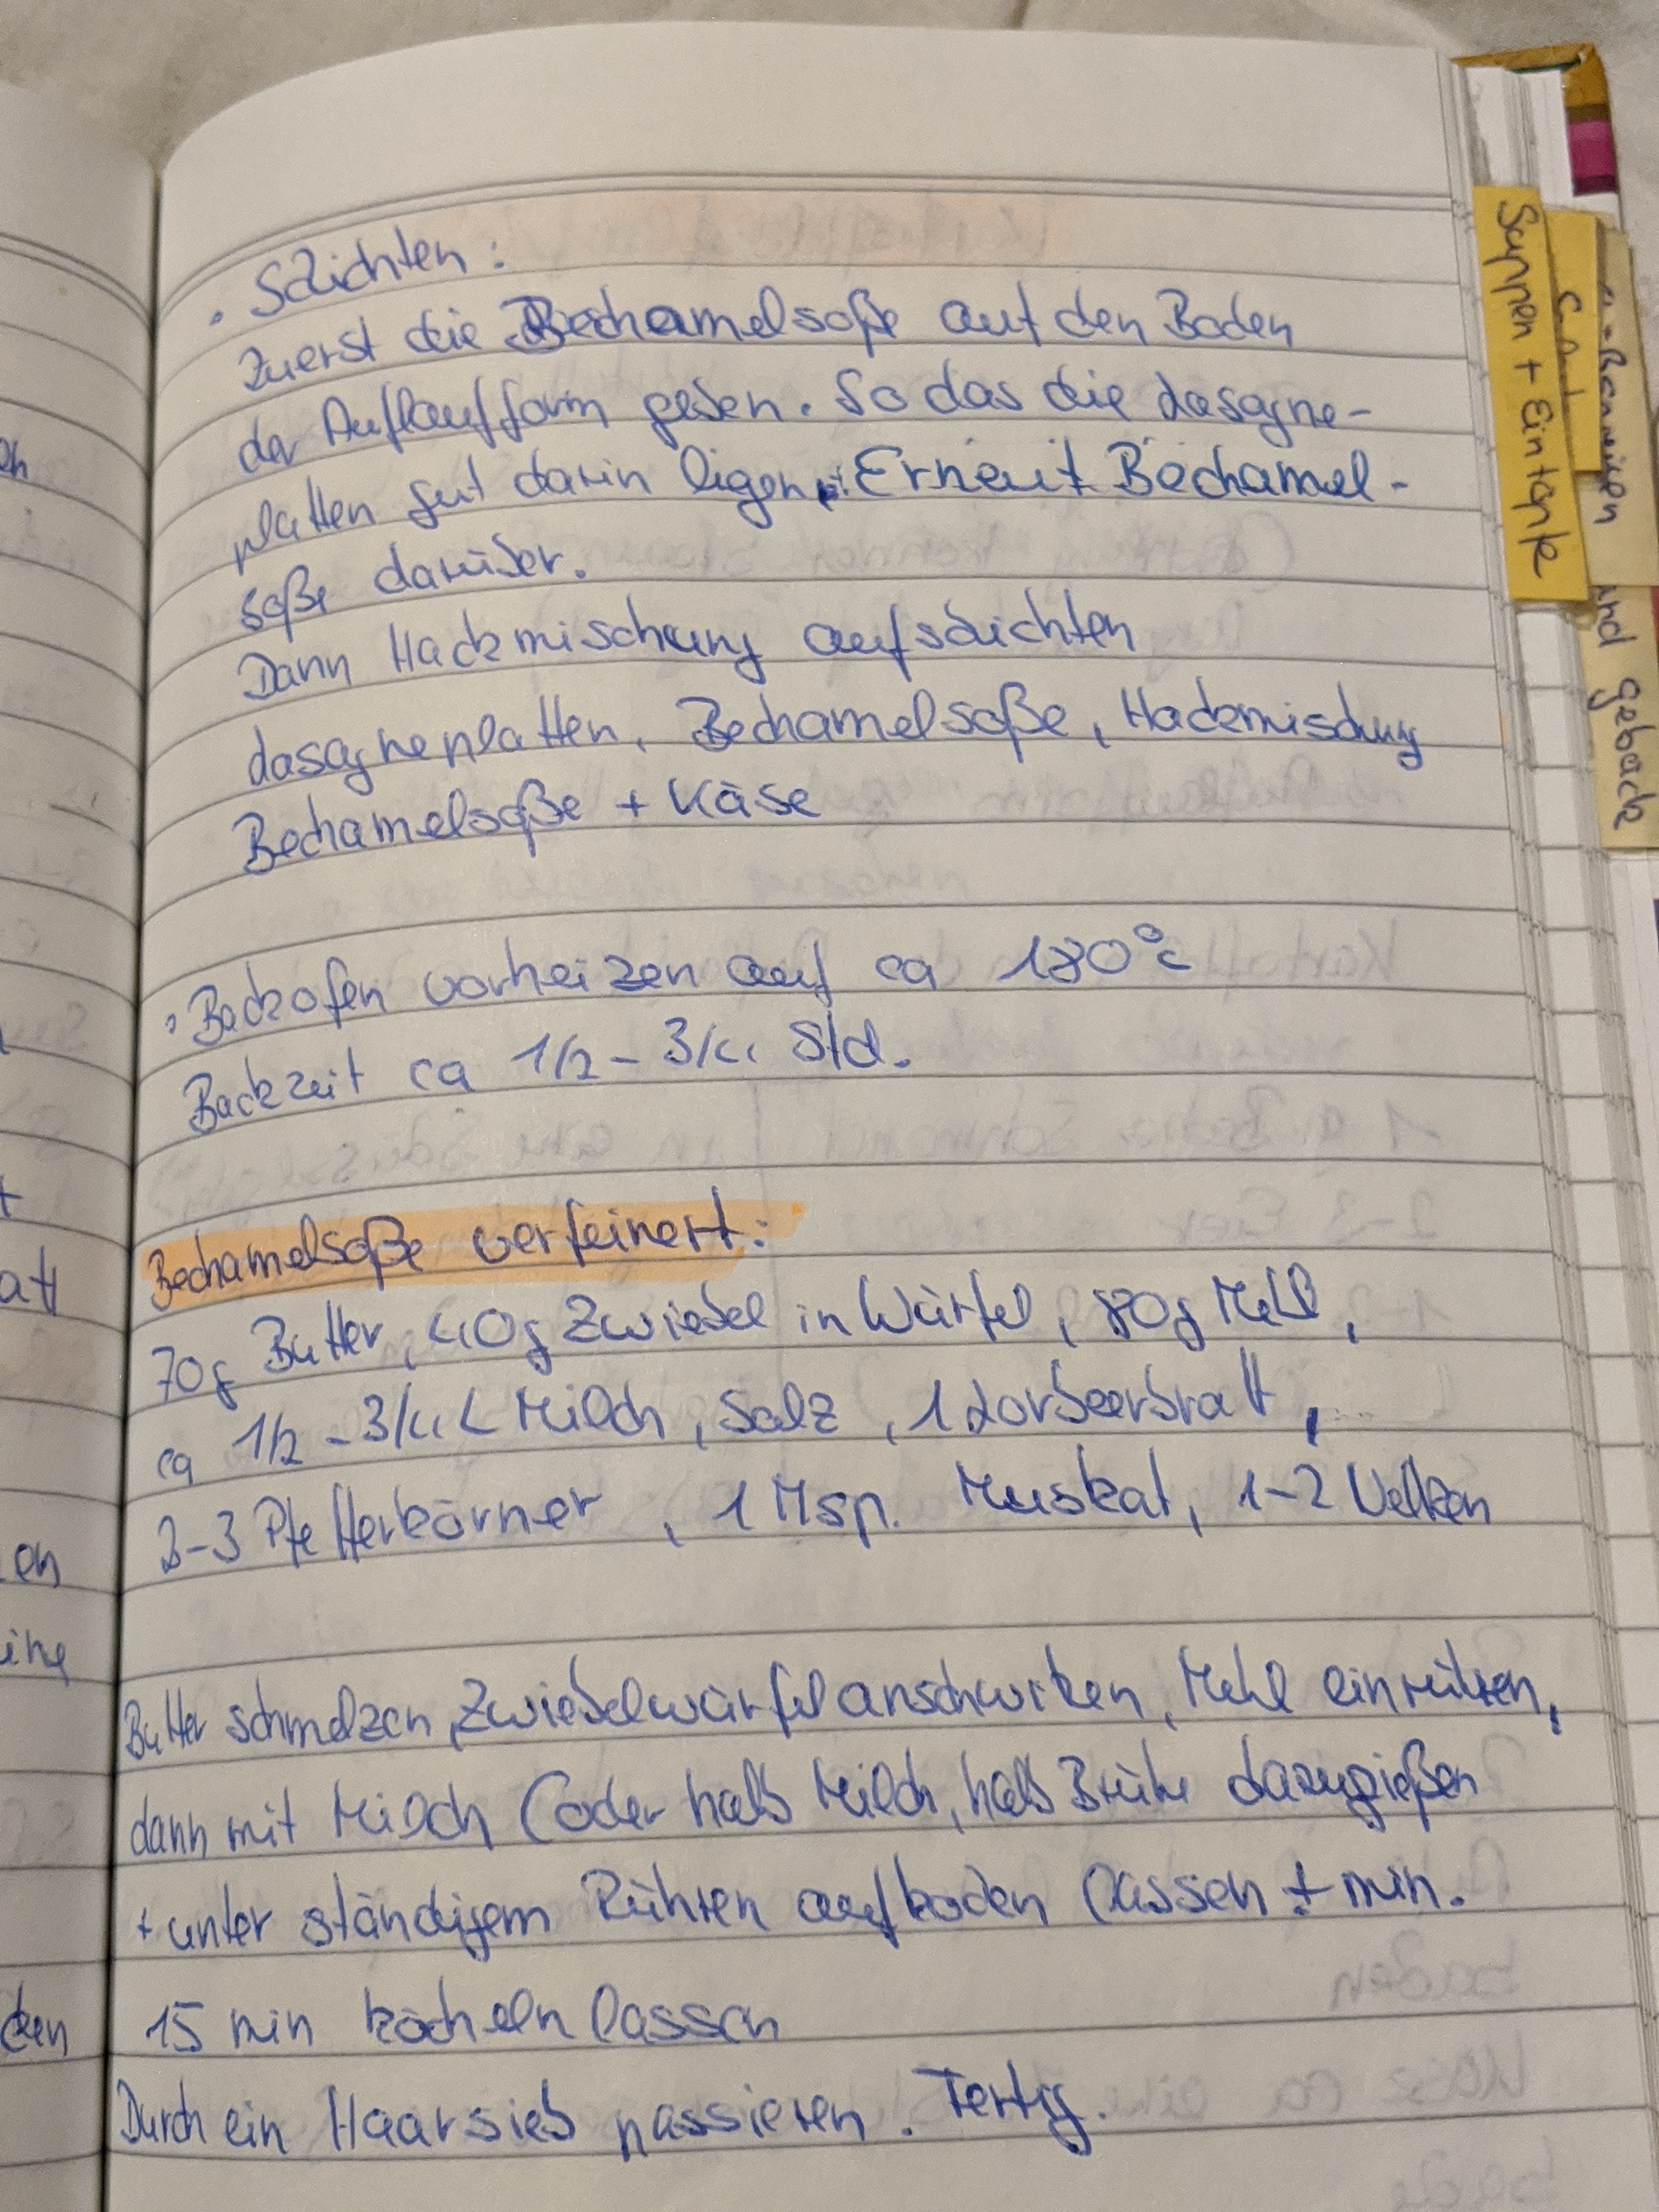 • Schichten:
Zuerst die Bechamelsoße auf den Boden
der Auflaufform geben. So das die Lasagne-
platten gut darin ligen. Erneut Bechamel-
soße darüber.
Dann Hackmischung aufschichten
Lasagnenplatten, Bechamelsoße, Hackmischung
Bechamelsoße + Käse
• Backofen vorheizen auf ca 180°C
Backzeit ca 1/2 - 3/4 Std.
Bechamelsoße verfeinert:
70g Butter, 40g Zwiebel in Würfel, 80g Mehl,
ca 1/2 - 3/4 L Milch, Salz, 1 Lorbeerbratt,
2-3 Pfefferkörner, 1 Msp. Muskat, 1-2 Nelken
Butter schmelzen, Zwiebelwürfel anschwitzen, Mehl einrühren,
dann mit Milch (oder halb Milch, halb Brühe dazugießen
+ unter ständigem Rühren aufkochen lassen + min.
15 min köcheln lassen
Durch ein Haarsieb passieren. Fertig.
Suppen + Eintöpfe
und gebäck
en
att
en
ine